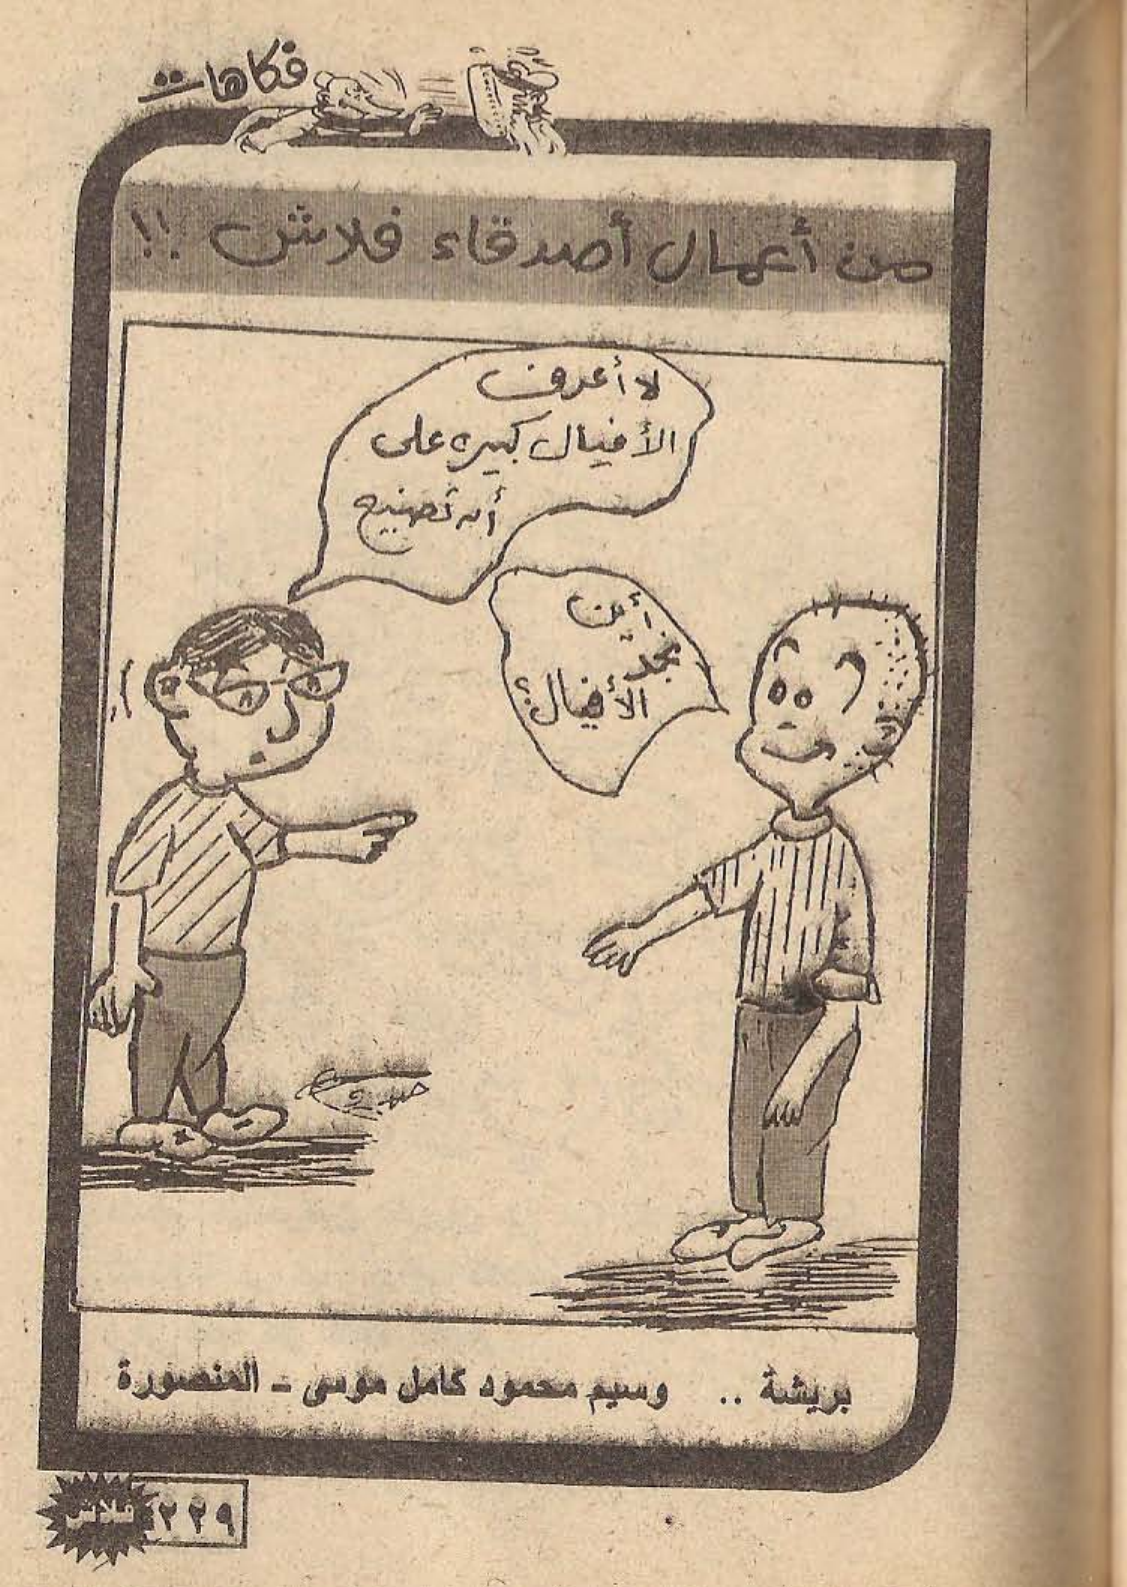 فكاهات
من أعمال أصدقاء فلاش !!
أين
نجد
الأفيال؟
لا أعرف
الأفيال كبيره على
أن تضيع
بريشة .. وسيم محمود كامل موسى - المنصورة
فلاش ٢٢٩